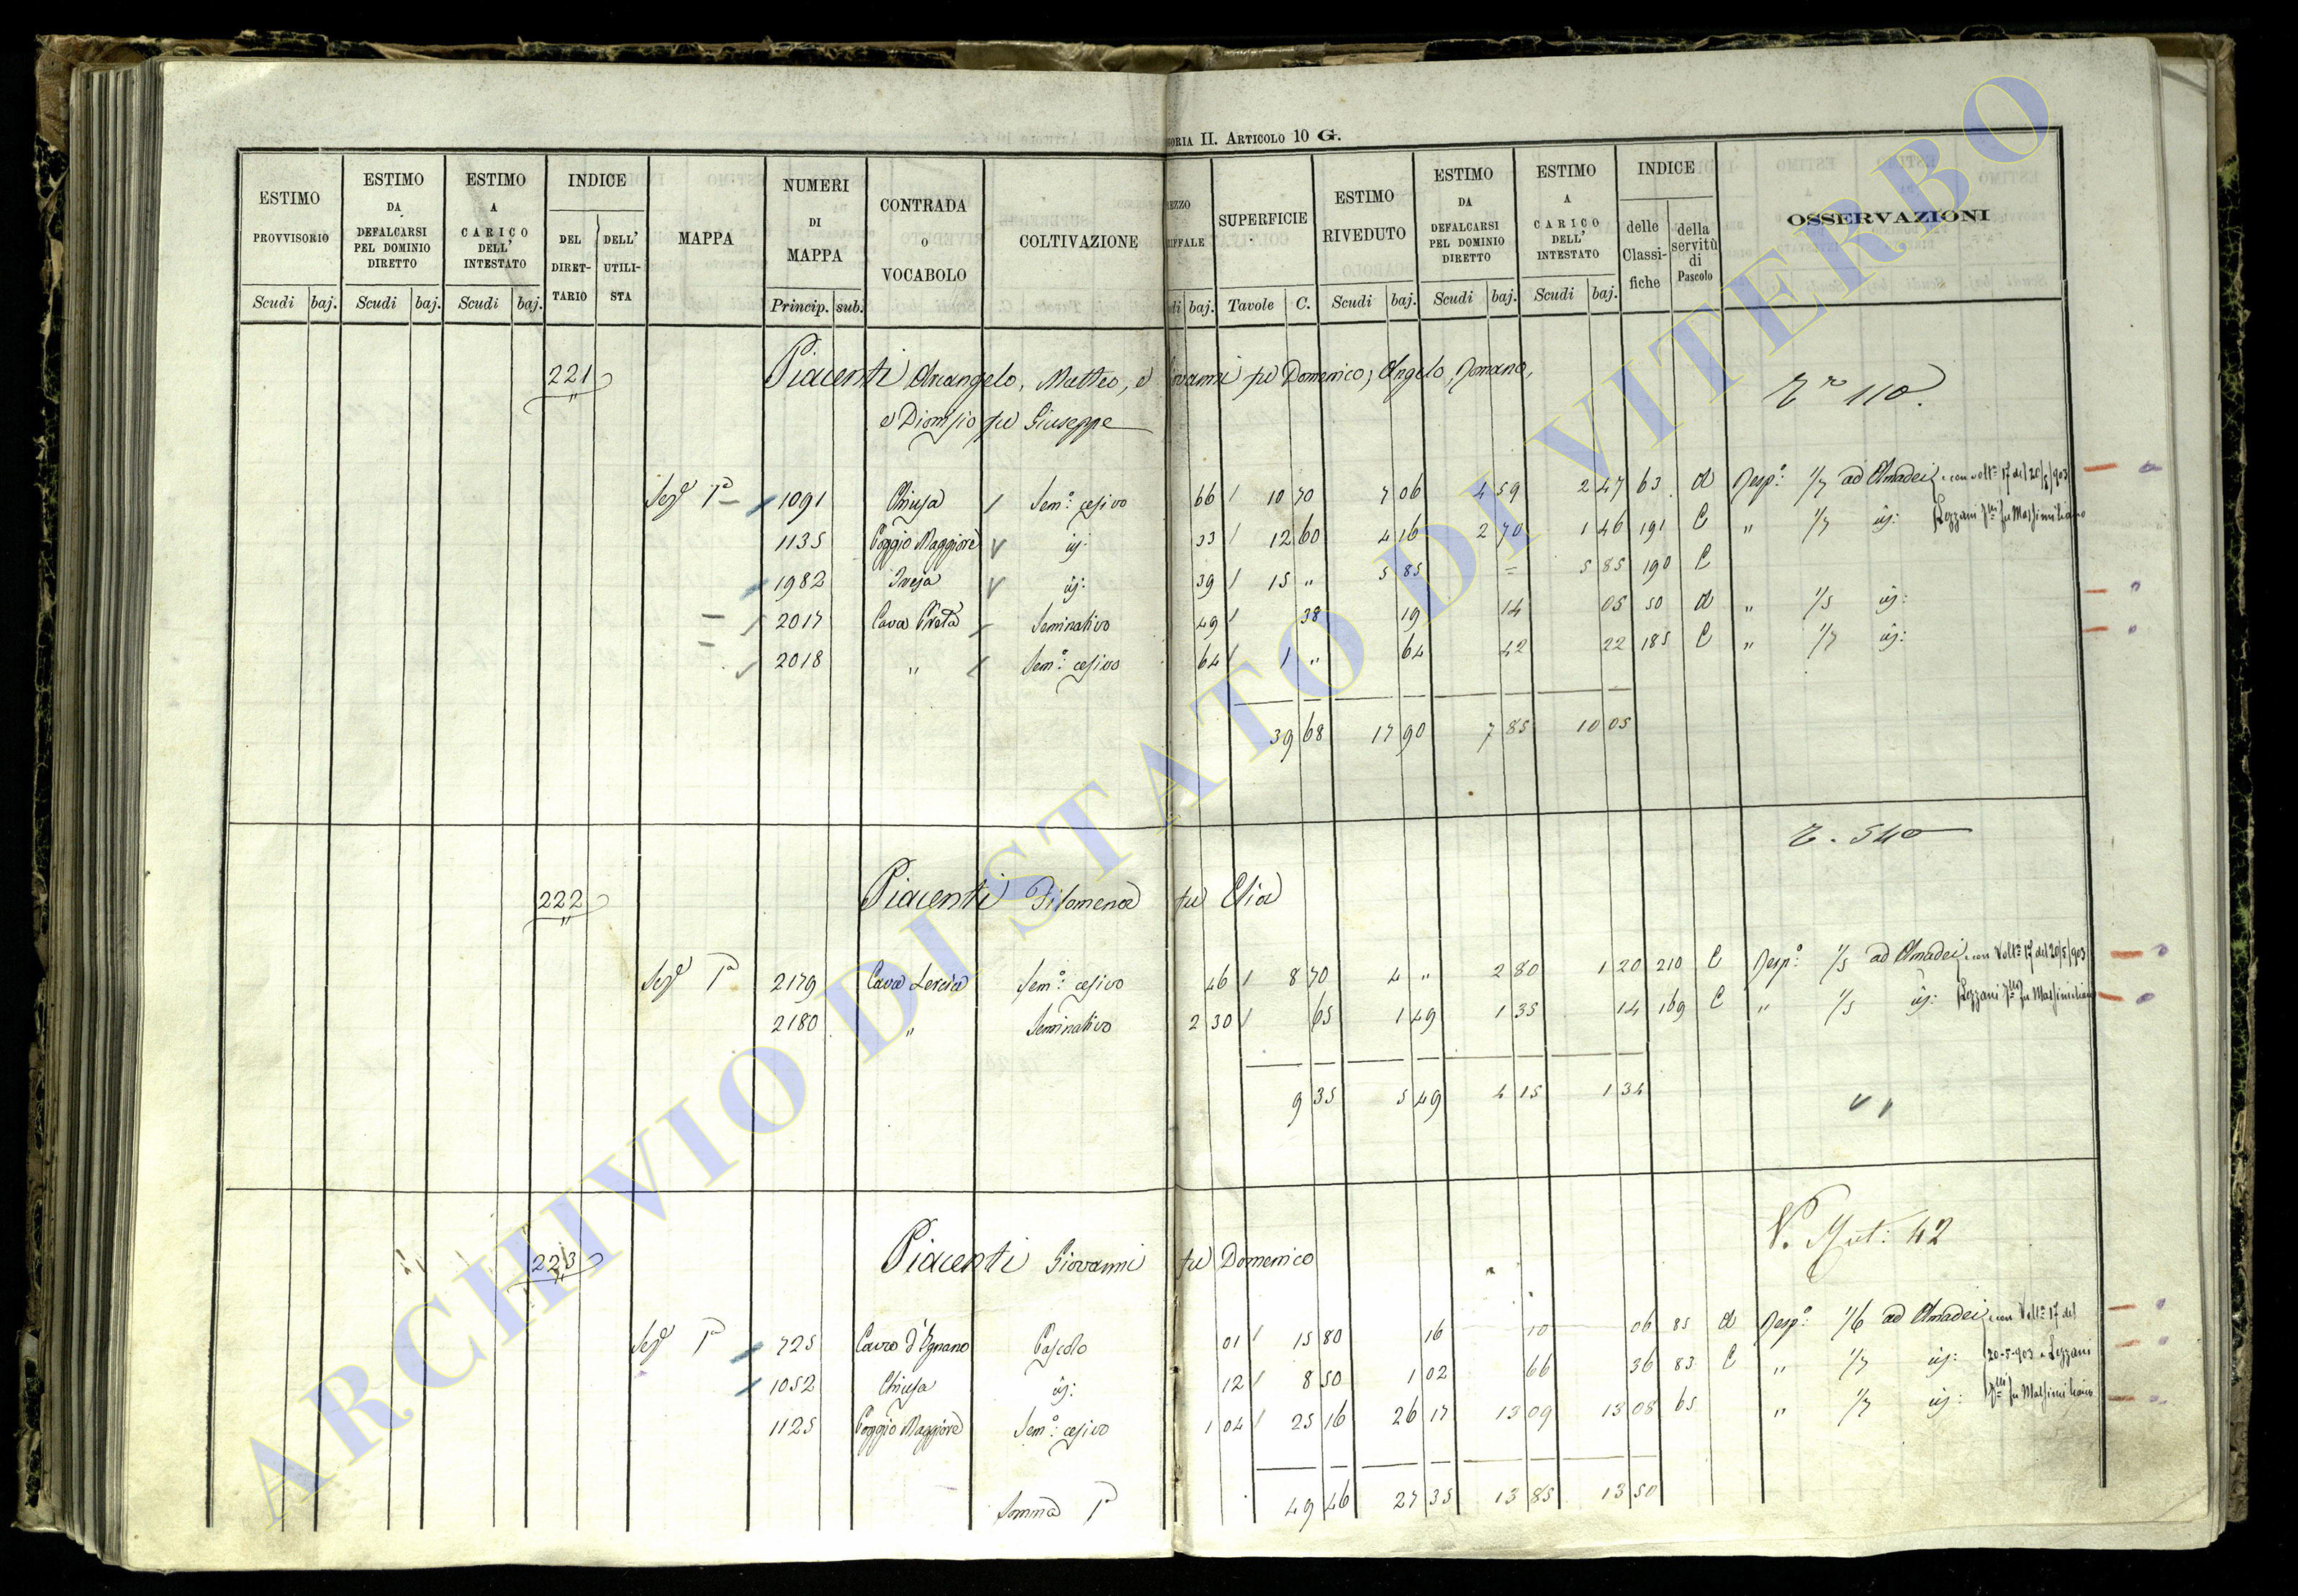 ORIA II. ARTICOLO 10 G.
ESTIMO PROVVISORIO | ESTIMO DA DEFALCARSI PEL DOMINIO DIRETTO | ESTIMO A CARICO DELL' INTESTATO | INDICE | MAPPA | NUMERI DI MAPPA | CONTRADA O VOCABOLO | COLTIVAZIONE | REZZO RIFFALE | SUPERFICIE | ESTIMO RIVEDUTO | ESTIMO DA DEFALCARSI PEL DOMINIO DIRETTO | ESTIMO A CARICO DELL' INTESTATO | INDICE | OSSERVAZIONI
DEL DIRET-TARIO | DELL' UTILI-STA | delle Classi-fiche | della servitù di Pascolo
Scudi | baj. | Scudi | baj. | Scudi | baj. | Princip. | sub. | di | baj. | Tavole | C. | Scudi | baj. | Scudi | baj. | Scudi | baj.
221 Piacenti Arcangelo, Matteo, e Giovanni fu Domenico, Angelo, Romano,
e Dionisio fu Giuseppe
110.
Sez.e 1a 1091 Chiusa Sem.o cesivo 66 10 70 7 06 4 59 2 47 63 d Resp.o 1/7 ad Amadei e con volt.a 17 del 20/5/903
1135 Poggio Maggiore id: 33 12 60 4 16 2 70 1 46 191 C " 1/7 id: Lezzani fu Massimiliano
1982 id: 39 15 " 5 85 = 5 85 190 C
2017 Cava Creta Seminativo 49 38 19 14 05 50 d " 1/5 id:
2018 " Sem.o cesivo 64 1 " 64 42 22 185 C " 1/7 id:
39 68 17 90 7 85 10 05
540
222 Piacenti Filomena fu Elia
Sez.e 1a 2179 Cava Lescia Sem.o cesivo 46 8 70 4 " 2 80 1 20 210 C Resp.o 1/5 ad Amadei e con Volt.a 17 del 20/5/903
2180 " Seminativo 2 30 65 1 49 1 35 14 169 C " 1/5 id: Lezzani fu Massimiliano
9 35 5 49 4 15 1 34
V. Mut: 42
223 Piacenti Giovanni fu Domenico
Sez.e 1a 725 Cavo d'Ignano Pascolo 01 15 80 16 10 06 85 d Resp.o 1/6 ad Amadei e con Volt.a 17 del
1052 Chiusa id: 12 8 50 1 02 66 36 83 C " 1/7 id: 20-5-903 a Lezzani
1125 Poggio Maggiore Sem.o cesivo 1 04 25 16 26 17 13 09 13 08 65 " 1/7 id: fu Massimiliano
Somma 1a 49 46 27 35 13 85 13 50
ARCHIVIO DI STATO DI VITERBO